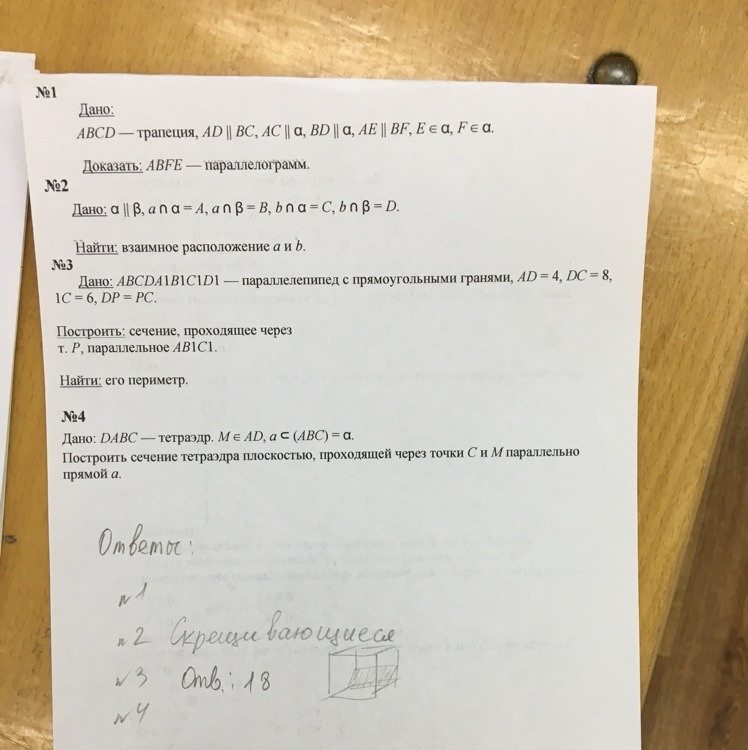 №1
Дано:
ABCD — трапеция, AD || BC, AC || α, BD || α, AE || BF, E ∈ α, F ∈ α.
Доказать: ABFE — параллелограмм.
№2
Дано: α || β, a ∩ α = A, a ∩ β = B, b ∩ α = C, b ∩ β = D.
Найти: взаимное расположение a и b.
№3
Дано: ABCDA1B1C1D1 — параллелепипед с прямоугольными гранями, AD = 4, DC = 8,
1C = 6, DP = PC.
Построить: сечение, проходящее через
т. P, параллельное AB1C1.
Найти: его периметр.
№4
Дано: DABC — тетраэдр. M ∈ AD, a ⊂ (ABC) = α.
Построить сечение тетраэдра плоскостью, проходящей через точки C и M параллельно
прямой a.
Ответы:
№1
№2 Скрещивающиеся
№3 Отв.: 18
№4